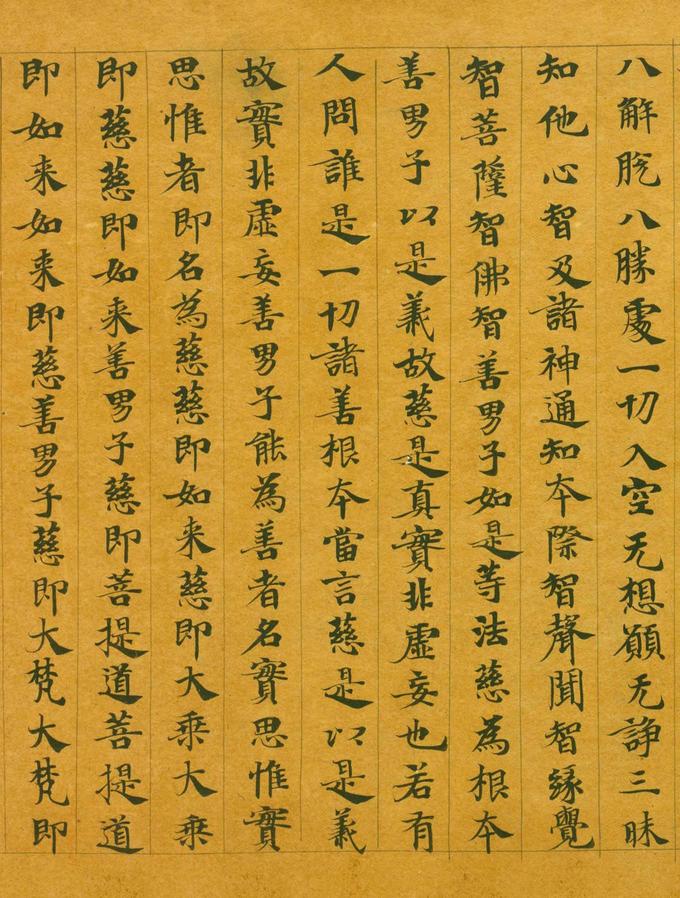 八解脫八勝處一切入空无想願无諍三昧
知他心智及諸神通知本際智聲聞智緣覺
智菩薩智佛智善男子如是等法慈為根本
善男子以是義故慈是真實非虛妄也若有
人問誰是一切諸善根本當言慈是以是義
故實非虛妄善男子能為善者名實思惟實
思惟者即名為慈慈即如来慈即大乗大乗
即慈慈即如来善男子慈即菩提道菩提道
即如来如来即慈善男子慈即大梵大梵即